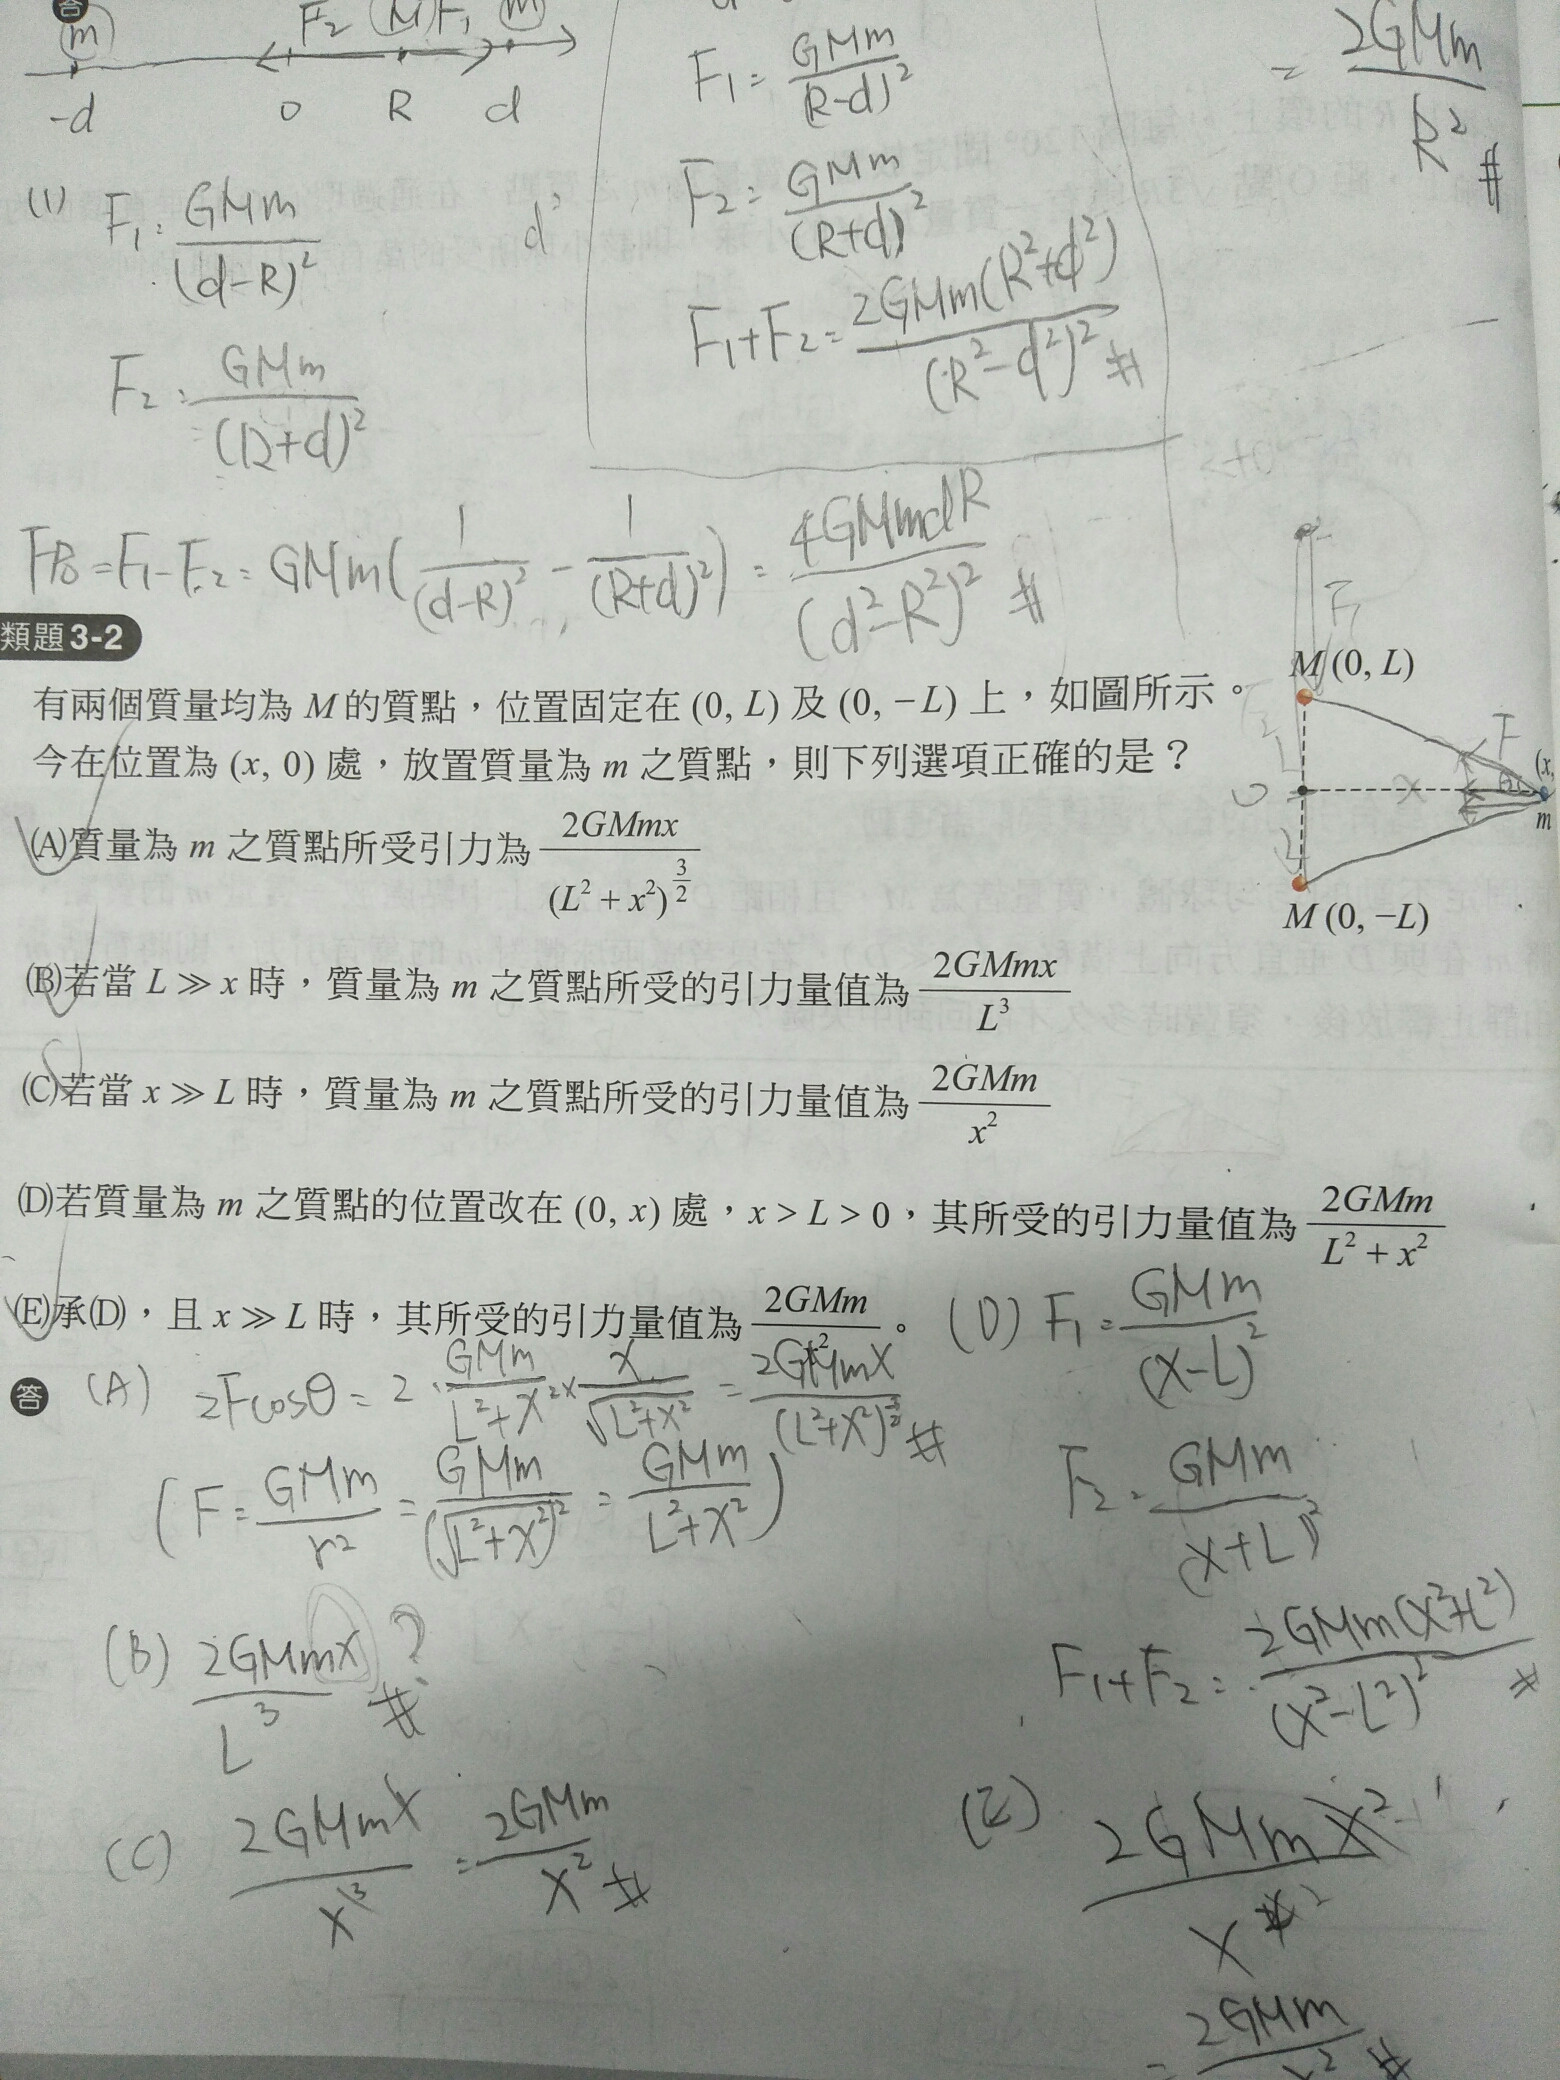 答
m F₂ M F₁ m
-d 0 R d
(1) F₁ = GMm/(d-R)²
F₂ = GMm/(R+d)²
F₁ = GMm/(R-d)²
F₂ = GMm/(R+d)²
F₁+F₂ = 2GMm(R²+d²)/(R²-d²)² #
= 2GMm/R² #
= F₁-F₂ = GMm(1/(d-R)² - 1/(R+d)²) = 4GMmdR/(d²-R²)² #
類題 3-2
有兩個質量均為 M 的質點，位置固定在 (0, L) 及 (0, −L) 上，如圖所示。
今在位置為 (x, 0) 處，放置質量為 m 之質點，則下列選項正確的是？
(A)質量為 m 之質點所受引力為 2GMmx/(L² + x²)^(3/2)
(B)若當 L ≫ x 時，質量為 m 之質點所受的引力量值為 2GMmx/L³
(C)若當 x ≫ L 時，質量為 m 之質點所受的引力量值為 2GMm/x²
(D)若質量為 m 之質點的位置改在 (0, x) 處，x > L > 0，其所受的引力量值為 2GMm/(L² + x²)
(E)承(D)，且 x ≫ L 時，其所受的引力量值為 2GMm/x²。
F₁
M (0, L)
L
F
(x,
0 x θ
m
L
M (0, −L)
答
(A) 2Fcosθ = 2·GMm/(L²+x²) × x/√(L²+x²) = 2GMmx/(L²+x²)^(3/2) #
(F = GMm/r² = GMm/(√(L²+x²))² = GMm/(L²+x²))
(B) 2GMmx/L³ ? #
(C) 2GMmx/x³ = 2GMm/x² #
(D) F₁ = GMm/(x-L)²
F₂ = GMm/(x+L)²
F₁+F₂ = 2GMm(x²+L²)/(x²-L²)² #
(E) 2GMmx²/x⁴
= 2GMm/x² #